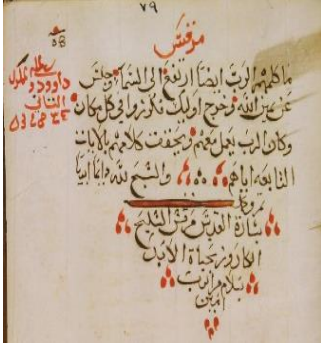 ٧٩
مرقس
ما كلمهم الرب ايضا ارتفع الى السما وجلس
عن يمين الله وخرج اوليك فكرزوا في كل مكان
وكان الرب يعمل معهم ويحقق كلامهم بالايات
التابعه اياهم والسبح لله دايما ابديا
بشارة القديس مرقس
الكاروز بحياة الابد
بسلام من الرب
امين
داوود و
الثاني